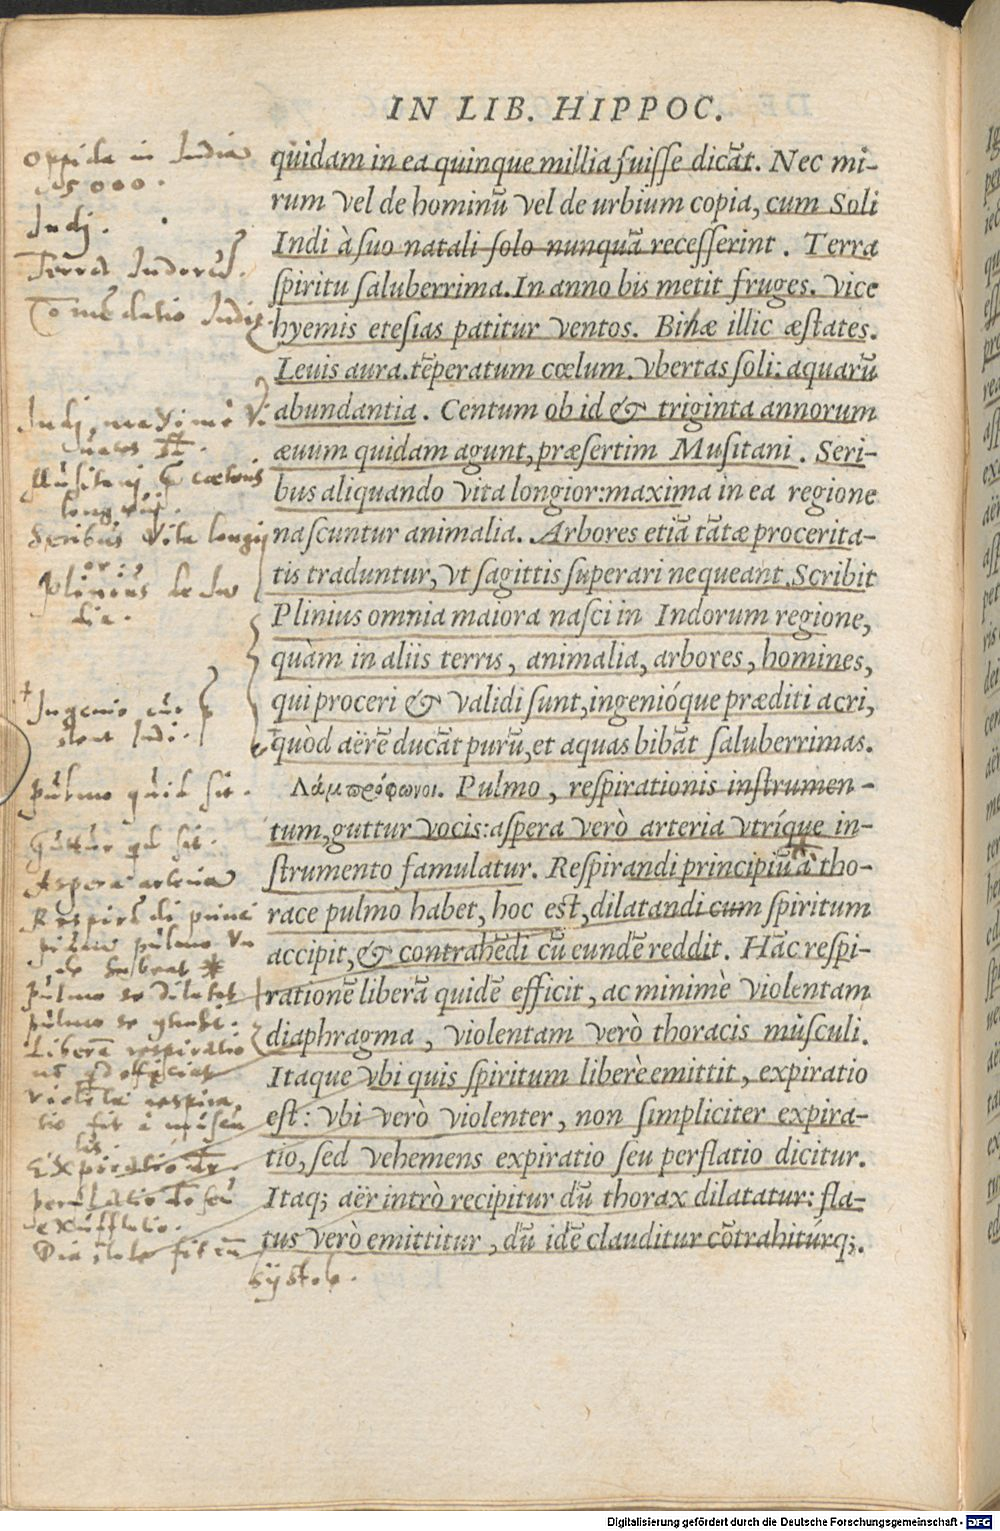 IN LIB. HIPPOC.
quidam in ea quinque millia fuisse dicāt. Nec mi-
rum vel de hominū vel de urbium copia, cum Soli
Indi à suo natali solo nunquā recesserint. Terra
spiritu saluberrima. In anno bis metit fruges. Vice
hyemis etesias patitur ventos. Binæ illic æstates.
Leuis aura. tēperatum cœlum. vbertas soli: aquarū
abundantia. Centum ob id & triginta annorum
æuum quidam agunt, præsertim Musitani. Seri-
bus aliquando vita longior: maxima in ea regione
nascuntur animalia. Arbores etiā tātæ procerita-
tis traduntur, vt sagittis superari nequeant. Scribit
Plinius omnia maiora nasci in Indorum regione,
quàm in aliis terris, animalia, arbores, homines,
qui proceri & validi sunt, ingenióque præditi acri,
quòd aërē ducāt purū, et aquas bibāt saluberrimas.
Λάμπρόφωνοι. Pulmo, respirationis instrumen-
tum, guttur vocis: aspera verò arteria vtríque in-
strumento famulatur. Respirandi principiū à tho-
race pulmo habet, hoc est, dilatandi cum spiritum
accipit, & contrahēdi cū eundē reddit. Hāc respi-
rationē liberā quidē efficit, ac minimè violentam
diaphragma, violentam verò thoracis musculi.
Itaque vbi quis spiritum liberè emittit, expiratio
est: vbi verò violenter, non simpliciter expira-
tio, sed vehemens expiratio seu perflatio dicitur.
Itaq; aër intrò recipitur dū thorax dilatatur: fla-
tus verò emittitur, dū idē clauditur cōtrahitúrq;.
oppida in India
5000.
Indj.
Terra Indorū.
Indj
Musitanj
Seribus vita longi
or.
Plinius de In
dia.
Ingenio
Indi.
pulmo quid sit.
Guttur qd sit.
Aspera arteria
pulmo
habeat *
pulmo se dilatat
pulmo se
Libera respiratio
violēta respira
tio fit à muscu
lis.
Expiratio
seu
exufflatio.
Diastole fit cū
systole.
Digitalisierung gefördert durch die Deutsche Forschungsgemeinschaft - DFG